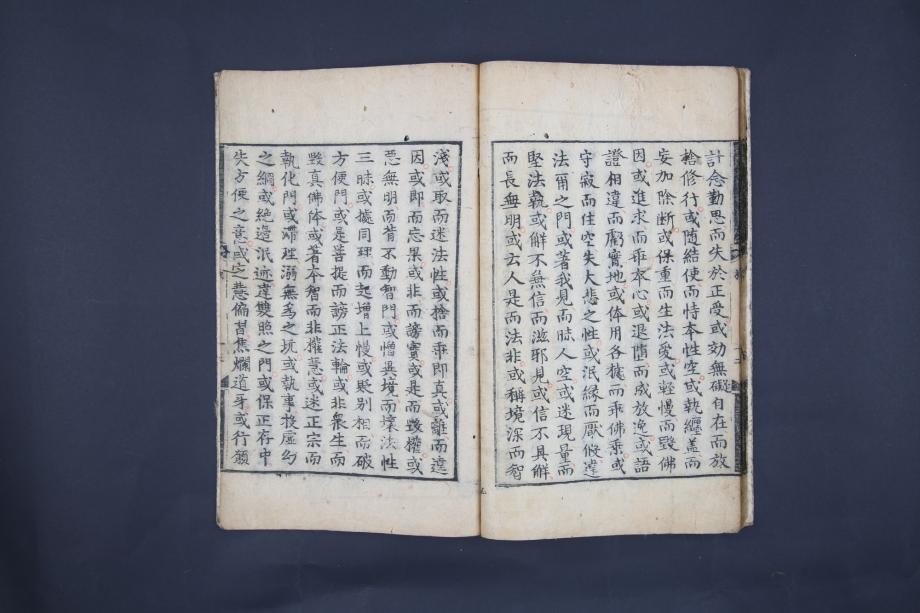 計念勤思而失於正受或効無礙自在而放
捨修行或随結使而恃本性空或執纏盖而
妄加除断或保重而生法愛或輕慢而毀佛
因或進求而乖本心或退墮而成放逸或語
證相違而虧實地或体用各據而乖佛乘或
守寂而住空失大悲之性或泯緣而厭假違
法爾之門或著我見而昧人空或迷現量而
堅法執或解不無信而滋邪見或信不具解
而長無明或云人是而法非或稱境深而智
淺或取而迷法性或捨而乖即真或離而違
因或即而忘果或非而謗實或是而毀權或
惡無明而背不動智門或憎異境而壞法性
三昧或據同理而起增上慢或貶别相而破
方便門或是菩提而謗正法輪或非衆生而
毀真佛体或著本智而非權慧或迷正宗而
執化門或滯理溺無為之坑或執事投虛幻
之網或絶邉泯迹違雙照之門或保正存中
失方便之意或定慧偏習焦爛道牙或行願